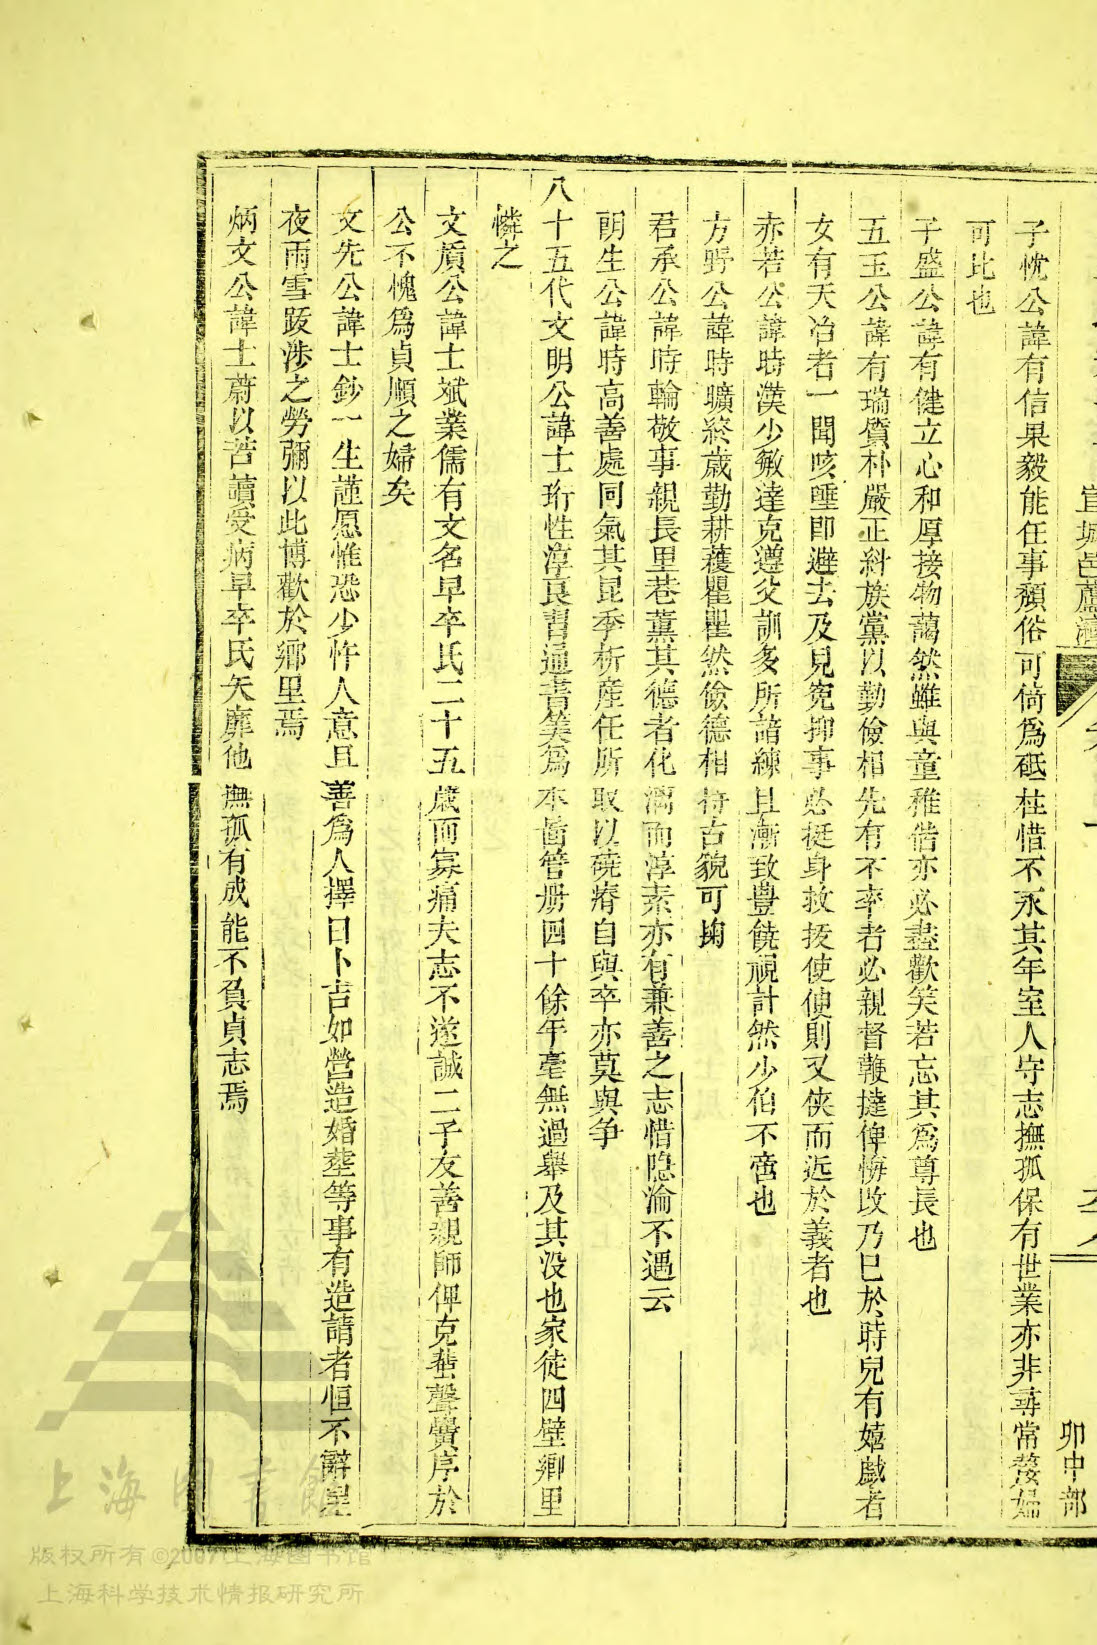 宣城邑蘆
卯中部
子忱公諱有信果毅能任事頽俗可倚爲砥柱惜不永其年室人守志撫孤保有世業亦非尋常嫠婦
可比也
子盛公諱有健立心和厚接物藹然雖與童稚偕亦必盡歡笑若忘其爲尊長也
五玉公諱有瑞質朴嚴正糾族黨以勤儉相先有不率者必親督鞭撻俾悔改乃已於時兒有嬉戯者
女有夭冶者一聞咳唾即避去及見寃抑事必挺身救援使使則又俠而近於義者也
赤若公諱時漢少敏達克遵父訓多所諳練且漸致豐饒視計然少伯不啻也
方野公諱時曠終歲勤耕穫瞿瞿然儉德相持古貌可掬
君承公諱時輪敬事親長里巷薰其德者化澆而淳素亦有兼善之志惜隐淪不遇云
朗生公諱時高善處同氣其昆季析産任所取以磽瘠自與卒亦莫與争
八十五代文明公諱士珩性淳良書通書筭爲本啚管册四十餘年毫無過舉及其没也家徒四壁鄉里
憐之
文質公諱士斌業儒有文名早卒氏二十五歲而寡痛夫志不遂誠二子友善親師俾克蜚聲黌序於
公不愧爲貞順之婦矣
文先公諱士鈔一生謹愿惟恐少忤人意且善爲人擇日卜吉如營造婚塟等事有造請者恒不辭星
夜雨雪跋涉之勞彌以此博歡於鄉里焉
炳文公諱士蔚以苦讀受病早卒氏矢靡他撫孤有成能不負貞志焉
上海图書館
版权所有©2007上海图书馆
上海科学技术情报研究所